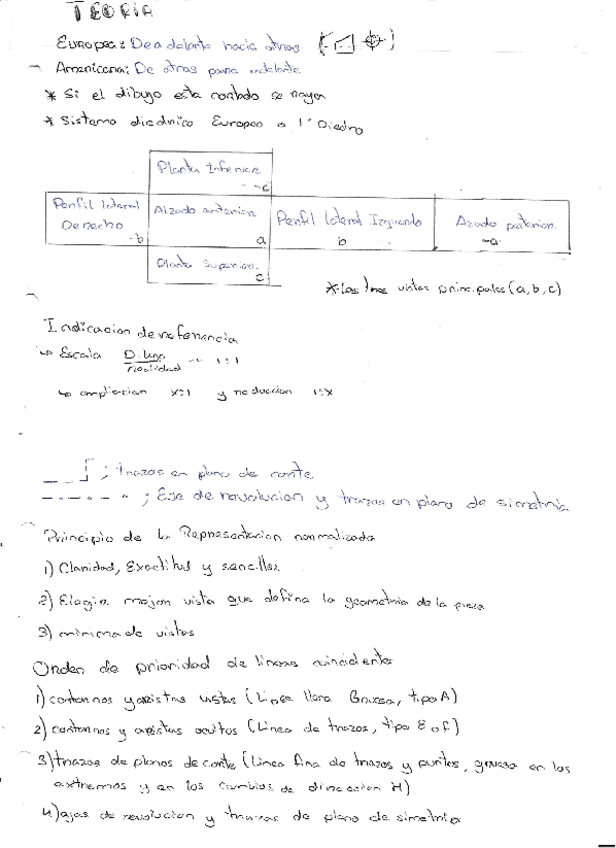 TEORIA
Europea: De adelante hacia atras
Americana: De atras para adelante
* Si el dibujo esta cortado se raya
* Sistema diedrico Europeo o 1º Diedro
Planta Inferior
-c
Perfil lateral Derecho
-b
Alzado anterior
a
Perfil lateral Izquierdo
b
Azado posterior
-a
Planta Superior
c
* Las tres vistas principales (a, b, c)
Indicacion de referencia
↳ Escala Dibujo/realidad → 1:1
↳ ampliacion x:1 y reduccion 1:x
; trazos en plano de corte
; Eje de revolucion y trazos en plano de simetria
Principio de la Representacion normalizada
1) Claridad, Exactitud y sencillez
2) Elegir mejor vista que defina la geometria de la pieza
3) minima de vistas
Orden de prioridad de lineas coincidentes
1) contornos y aristas vistas (Linea llena Gruesa, tipo A)
2) contornos y aristas ocultos (Linea de trazos, tipo E o F)
3) trazos de planos de corte (Linea fina de trazos y puntos, gruesa en los
extremos y en los cambios de direccion H)
4) ejes de revolucion y trazas de plano de simetria